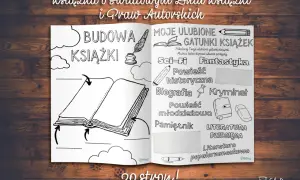 książka o Światowym Dniu Książki
i Praw Autorskich
BUDOWA
KSIĄŻKI
MOJE ULUBIONE
GATUNKI KSIĄŻEK
Sci-Fi
Fantastyka
Powieść
historyczna
Biografia
Kryminał
Powieść
młodzieżowa
Pamiętnik
LITERATURA
Literatura
popularnonaukowa
20 stron!